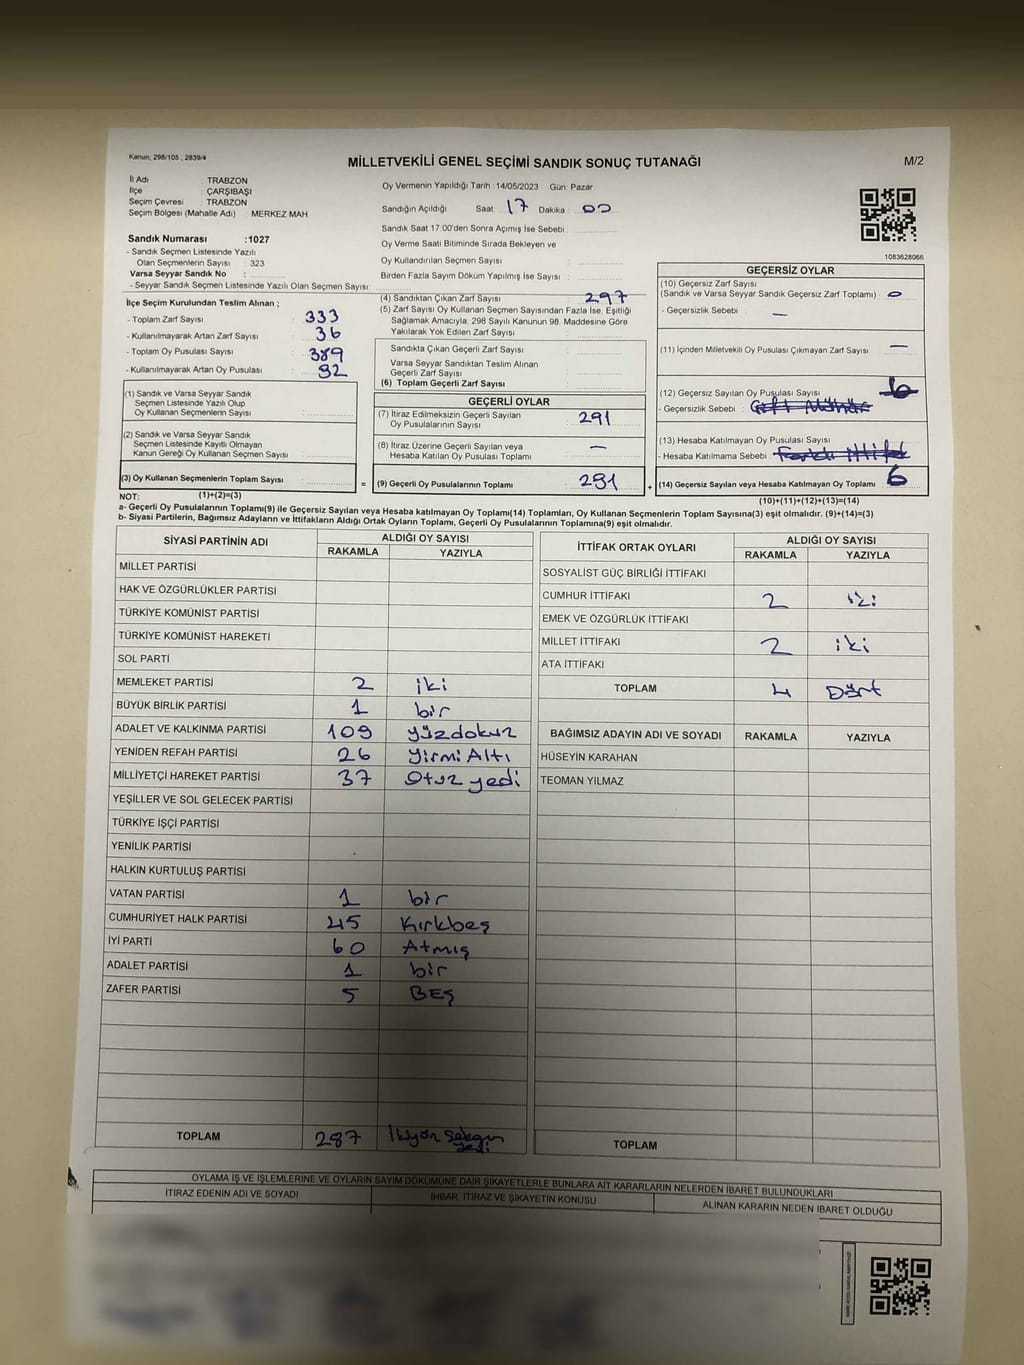 Kanun, 298/105 , 2839/4
MİLLETVEKİLİ GENEL SEÇİMİ SANDIK SONUÇ TUTANAĞI
M/2
İl Adı : TRABZON
İlçe : ÇARŞIBAŞI
Seçim Çevresi : TRABZON
Seçim Bölgesi (Mahalle Adı) : MERKEZ MAH
Sandık Numarası :1027
- Sandık Seçmen Listesinde Yazılı
Olan Seçmenlerin Sayısı : 323
Varsa Seyyar Sandık No :
- Seyyar Sandık Seçmen Listesinde Yazılı Olan Seçmen Sayısı
Oy Vermenin Yapıldığı Tarih : 14/05/2023 Gün: Pazar
Sandığın Açıldığı Saat: 17 Dakika : 00
Sandık Saat 17:00'den Sonra Açımış İse Sebebi :
Oy Verme Saati Bitiminde Sırada Bekleyen ve
Oy Kullandırılan Seçmen Sayısı :
Birden Fazla Sayım Döküm Yapılmış İse Sayısı :
1083628066
İlçe Seçim Kurulundan Teslim Alınan ;
- Toplam Zarf Sayısı : 333
- Kullanılmayarak Artan Zarf Sayısı : 36
- Toplam Oy Pusulası Sayısı : 389
- Kullanılmayarak Artan Oy Pusulası : 92
(1) Sandık ve Varsa Seyyar Sandık
Seçmen Listesinde Yazılı Olup
Oy Kullanan Seçmenlerin Sayısı :
(2) Sandık ve Varsa Seyyar Sandık
Seçmen Listesinde Kayıtlı Olmayan
Kanun Gereği Oy Kullanan Seçmen Sayısı :
(3) Oy Kullanan Seçmenlerin Toplam Sayısı :
(4) Sandıktan Çıkan Zarf Sayısı : 297
(5) Zarf Sayısı Oy Kullanan Seçmen Sayısından Fazla İse, Eşitliği
Sağlamak Amacıyla, 298 Sayılı Kanunun 98. Maddesine Göre
Yakılarak Yok Edilen Zarf Sayısı :
Sandıkta Çıkan Geçerli Zarf Sayısı :
Varsa Seyyar Sandıktan Teslim Alınan
Geçerli Zarf Sayısı :
(6) Toplam Geçerli Zarf Sayısı :
GEÇERLİ OYLAR
(7) İtiraz Edilmeksizin Geçerli Sayılan
Oy Pusulalarının Sayısı : 291
(8) İtiraz Üzerine Geçerli Sayılan veya
Hesaba Katılan Oy Pusulası Toplamı : —
= (9) Geçerli Oy Pusulalarının Toplamı : 291 +
GEÇERSİZ OYLAR
(10) Geçersiz Zarf Sayısı
(Sandık ve Varsa Seyyar Sandık Geçersiz Zarf Toplamı) : 0
- Geçersizlik Sebebi : —
(11) İçinden Milletvekili Oy Pusulası Çıkmayan Zarf Sayısı : —
(12) Geçersiz Sayılan Oy Pusulası Sayısı : 6
- Geçersizlik Sebebi :
(13) Hesaba Katılmayan Oy Pusulası Sayısı :
- Hesaba Katılmama Sebebi :
(14) Geçersiz Sayılan veya Hesaba Katılmayan Oy Toplamı : 6
NOT: (1)+(2)=(3)
(10)+(11)+(12)+(13)=(14)
a- Geçerli Oy Pusulalarının Toplamı(9) ile Geçersiz Sayılan veya Hesaba Katılmayan Oy Toplamı(14) Toplamları, Oy Kullanan Seçmenlerin Toplam Sayısına(3) eşit olmalıdır. (9)+(14)=(3)
b- Siyasi Partilerin, Bağımsız Adayların ve İttifakların Aldığı Ortak Oyların Toplamı, Geçerli Oy Pusulalarının Toplamına(9) eşit olmalıdır.
SİYASİ PARTİNİN ADI ALDIĞI OY SAYISI
RAKAMLA YAZIYLA
MİLLET PARTİSİ
HAK VE ÖZGÜRLÜKLER PARTİSİ
TÜRKİYE KOMÜNİST PARTİSİ
TÜRKİYE KOMÜNİST HAREKETİ
SOL PARTİ
MEMLEKET PARTİSİ 2 iki
BÜYÜK BİRLİK PARTİSİ 1 bir
ADALET VE KALKINMA PARTİSİ 109 yüzdokuz
YENİDEN REFAH PARTİSİ 26 Yirmi Altı
MİLLİYETÇİ HAREKET PARTİSİ 37 Otuz yedi
YEŞİLLER VE SOL GELECEK PARTİSİ
TÜRKİYE İŞÇİ PARTİSİ
YENİLİK PARTİSİ
HALKIN KURTULUŞ PARTİSİ
VATAN PARTİSİ 1 bir
CUMHURİYET HALK PARTİSİ 45 Kırkbeş
İYİ PARTİ 60 Atmış
ADALET PARTİSİ 1 bir
ZAFER PARTİSİ 5 BEŞ
TOPLAM 287
İTTİFAK ORTAK OYLARI ALDIĞI OY SAYISI
RAKAMLA YAZIYLA
SOSYALİST GÜÇ BİRLİĞİ İTTİFAKI
CUMHUR İTTİFAKI 2 iki
EMEK VE ÖZGÜRLÜK İTTİFAKI
MİLLET İTTİFAKI 2 iki
ATA İTTİFAKI
TOPLAM 4 Dört
BAĞIMSIZ ADAYIN ADI VE SOYADI RAKAMLA YAZIYLA
HÜSEYİN KARAHAN
TEOMAN YILMAZ
TOPLAM
OYLAMA İŞ VE İŞLEMLERİNE VE OYLARIN SAYIM DÖKÜMÜNE DAİR ŞİKAYETLERLE BUNLARA AİT KARARLARIN NELERDEN İBARET BULUNDUKLARI
İTİRAZ EDENİN ADI VE SOYADI İHBAR, İTİRAZ VE ŞİKAYETİN KONUSU ALINAN KARARIN NEDEN İBARET OLDUĞU